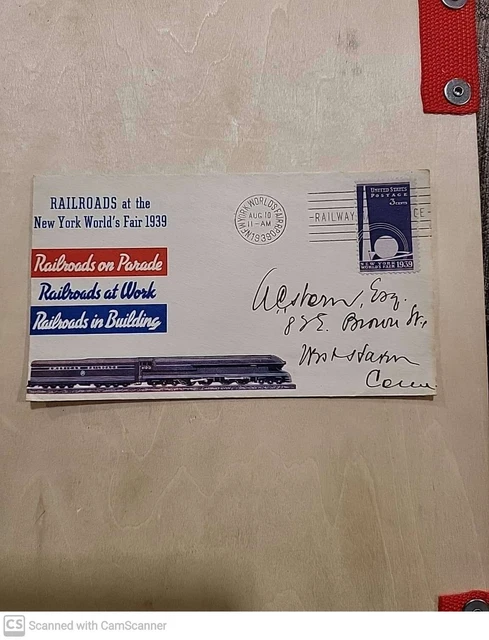 RAILROADS at the
New York World's Fair 1939
Railroads on Parade
Railroads at Work
Railroads in Building
AMERICAN RAILROADS
NEW YORK WORLDS FAIR
AUG 10
11-AM
1939
RAILWAY
UNITED STATES
POSTAGE
3 CENTS
NEW YORK
WORLD'S FAIR 1939
Esq.
Brown St.,
Conn.
CS Scanned with CamScanner